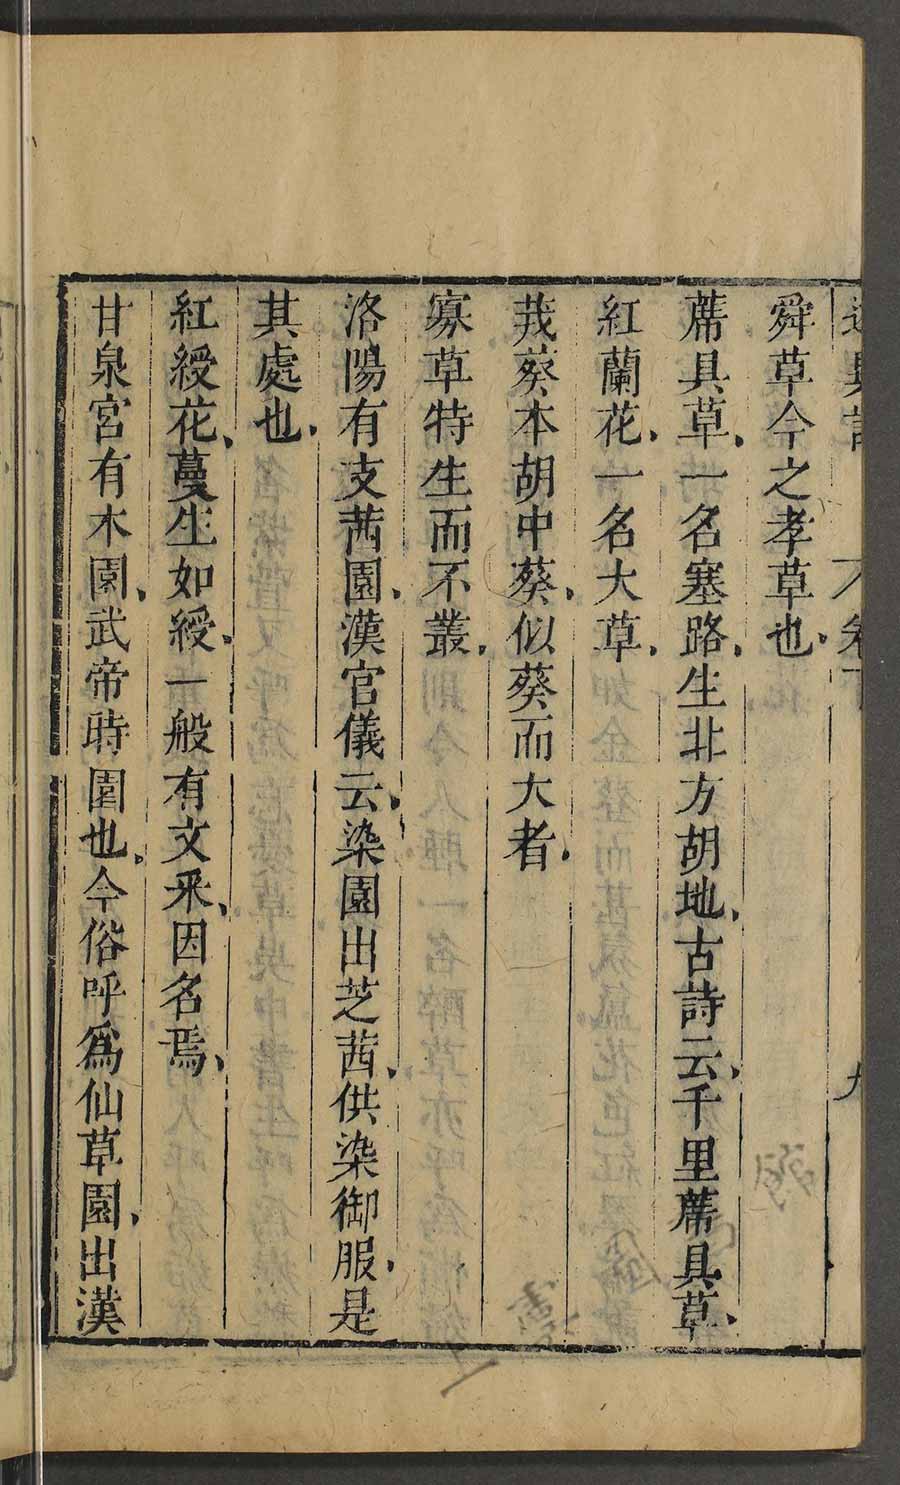 述異記 卷下 九
舜草今之孝草也、
蓆具草、一名塞路、生北方胡地、古詩云、千里蓆具草、
紅蘭花、一名大草、
茙葵本胡中葵、似葵而大者、
寡草特生而不叢、
洛陽有支茜園、漢官儀云、染園出芝茜、供染御服、是
其處也、
紅綬花、蔓生如綬、一般有文采、因名焉、
甘泉宮有木園、武帝時園也。今俗呼爲仙草園、出漢